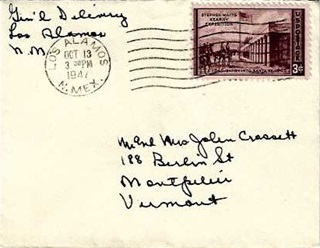 Gen'l Delivery
Los Alamos
N.M.
LOS ALAMOS
OCT 13
3 30 PM
1947
N. MEX.
STEPHEN WATTS
KEARNY
EXPEDITION
U.S. POSTAGE
3¢
Mr and Mrs John Crossett
188 Berlin St
Montpelier
Vermont